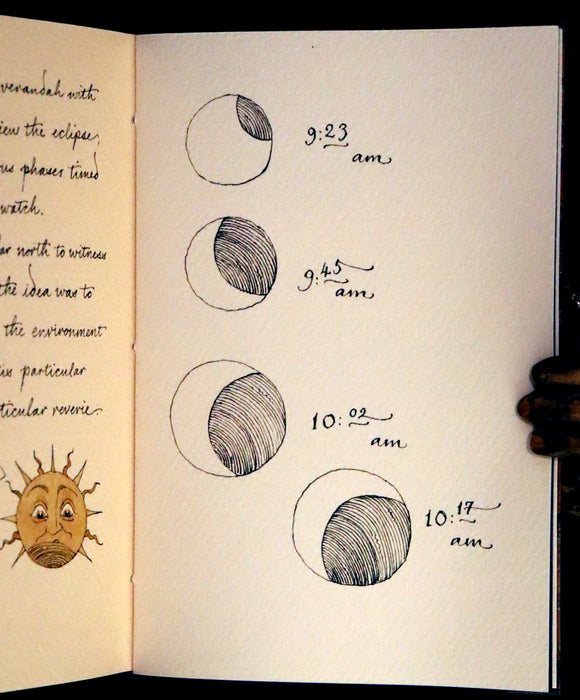 verandah with
view the eclipse;
phases timed
watch.
north to witness
the idea was to
the environment
particular
reverie
9:23
am
9:45
am
10:02
am
10:17
am